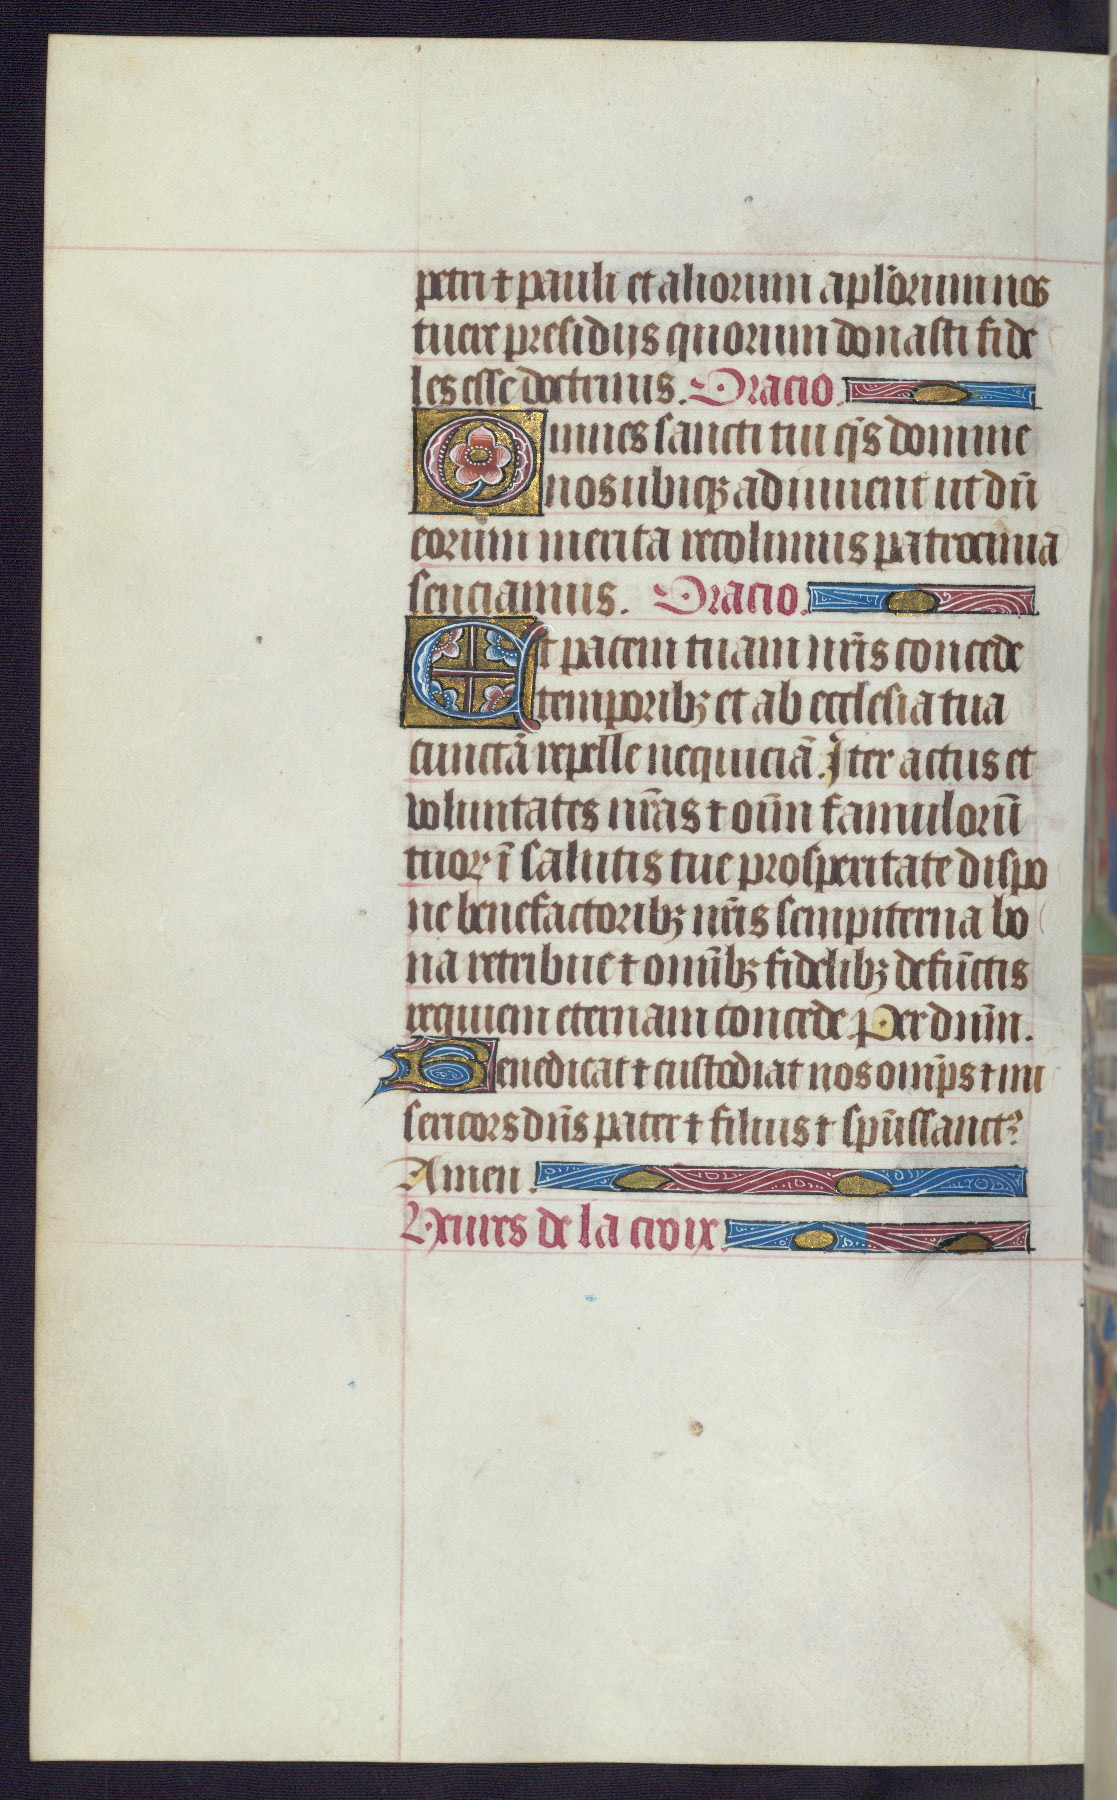 petri ⁊ pauli et aliorum apl̄orum nos
tuere presidijs quorum donasti fide
les esse doctrinis. Oracio.
Omnes sancti tui q̄s domine
nos ubiqꝫ adiuuent ut dū
eorum merita recolimus patrocinia
senciamus. Oracio.
Et pacem tuam nr̄is concede
temporibꝫ et ab ecclesia tua
cunctā repelle nequiciā. Iter actus et
voluntates nr̄as ⁊ oīm famulorū
tuoꝝ ī salutis tue prosperitate dispo
ne benefactoribꝫ nr̄is sempiterna bo
na retribue ⁊ omībꝫ fidelibꝫ defūctis
requiem eternam concede. Per dnm̄.
Benedicat ⁊ custodiat nos omp̄s ⁊ mi
sericors dn̄s pater ⁊ filius ⁊ spūssanctꝰ
Amen.
Heures de la croix